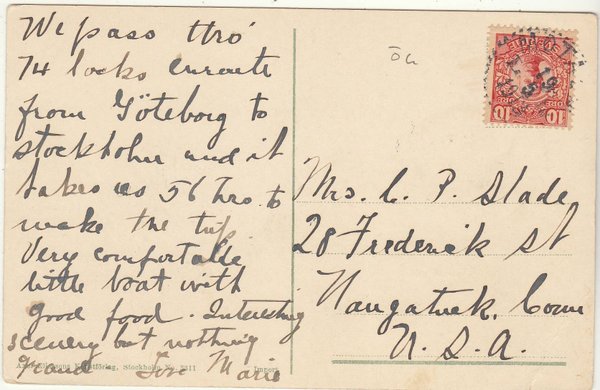 We pass thro'
74 locks enroute
from Göteborg to
stockholm and it
takes us 56 hrs. to
make the trip.
Very comfortable
little boat with
good food. Interesting
scenery but nothing
grand Love Marie
Stockholm No. 2211
Import
Öh
10 10
Mrs. C. P. Slade
28 Frederick St
Naugatuck, Conn
U. S. A.